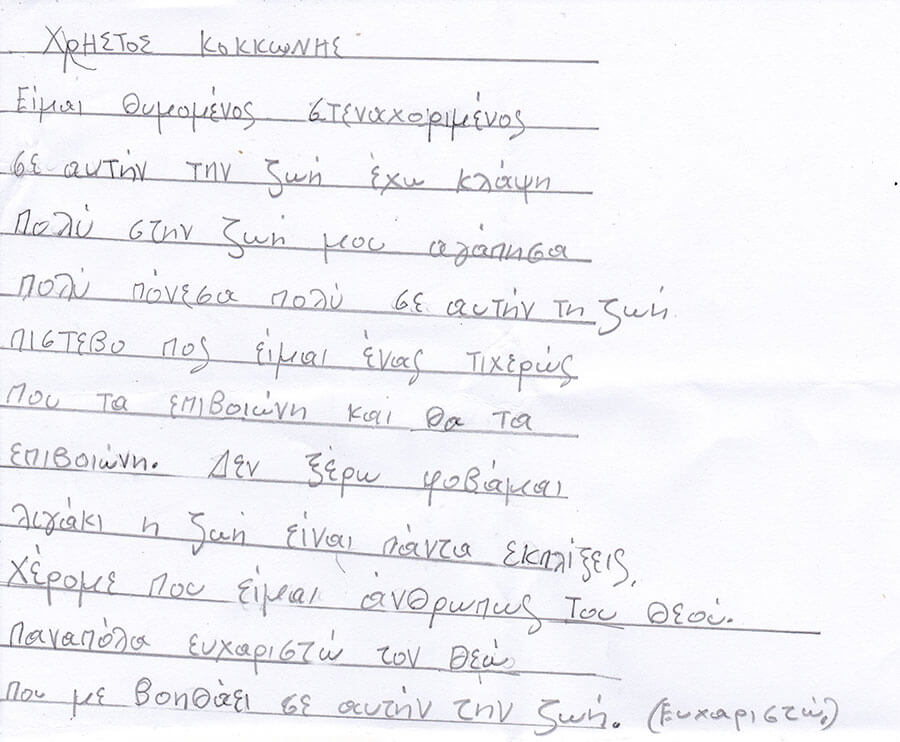 Χρήστος Κοκκώνης
Είμαι θυμομένος στεναχοριμένος
σε αυτήν την ζωή έχω κλάψη
Πολύ στην ζωή μου αγάπησα
πολύ πόνεσα πολύ σε αυτήν τη ζωή
πιστεβο πος είμαι ένας τιχερώς
που τα επιβοιώνη και θα τα
επιβοιώνη. Δεν ξέρω φοβάμαι
λιγάκι η ζωή είναι πάντα εκπλίξεις,
Χέρομε που είμαι άνθρωπως του θεού.
παναπόλα ευχαριστώ τον θεώ
που με βοηθάει σε αυτήν την ζωή. (Ευχαριστώ,)